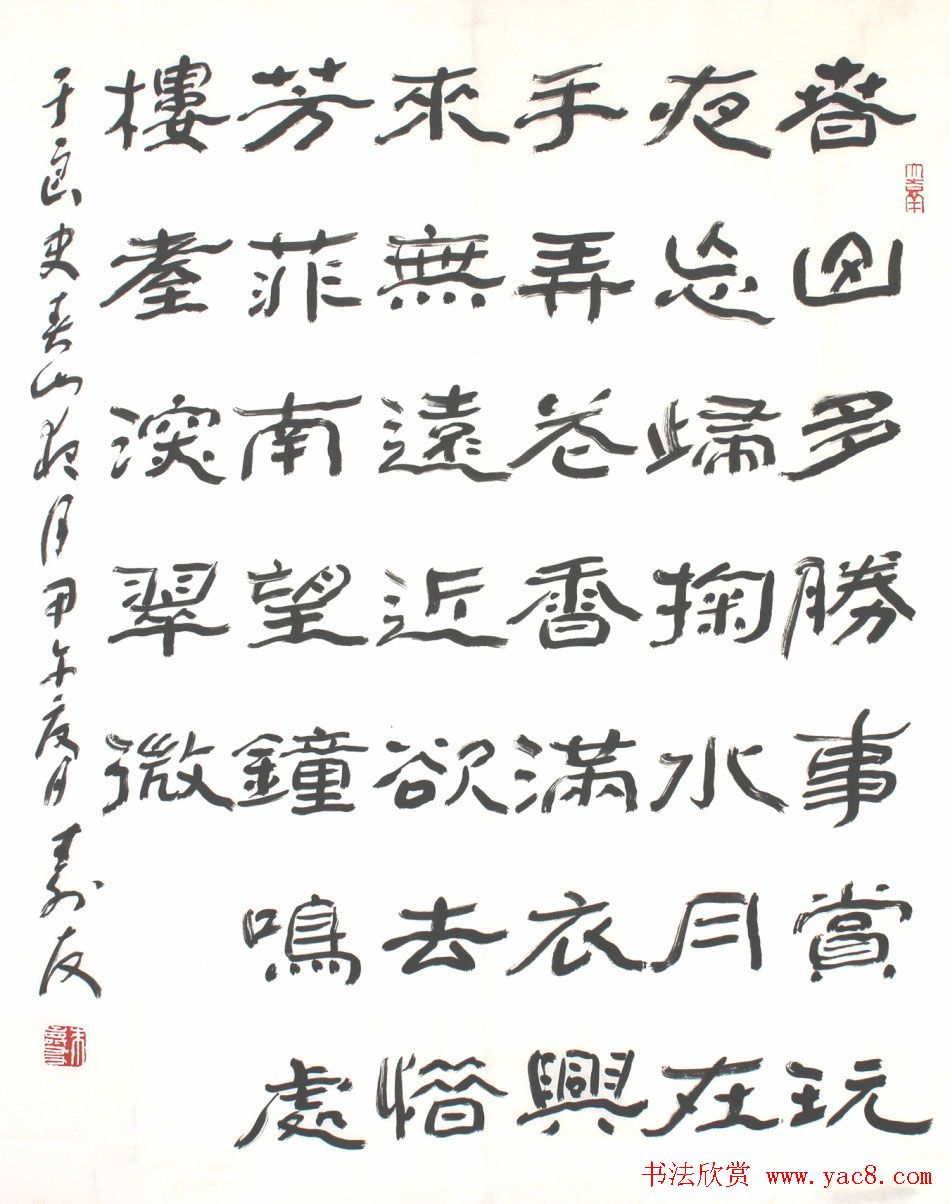 春山多勝事賞玩
夜忘歸掬水月在
手弄花香滿衣興
來無遠近欲去惜
芳菲南望鐘鳴處
樓臺深翠微
于良史春山夜月甲午夏月壽友
书法欣赏 www.yac8.com